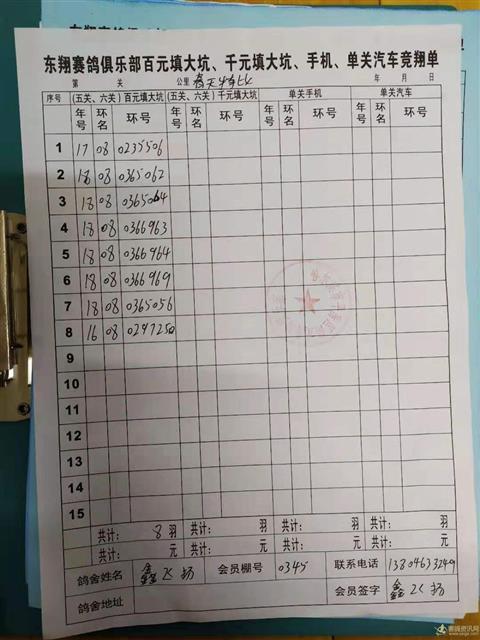 东翔赛鸽俱乐部百元填大坑、千元填大坑、手机、单关汽车竞翔单
第 关 公里 年 月 日
序号 (五关、六关)百元填大坑 (五关、六关)千元填大坑 单关手机 单关汽车
年号 环名 环号 年号 环名 环号 年号 环名 环号 年号 环名 环号
1 17 08 0235506
2 18 08 0365062
3 18 08 0365064
4 18 08 0366963
5 18 08 0366964
6 18 08 0366969
7 18 08 0365056
8 16 08 0297250
9
10
11
12
13
14
15
共计: 8 羽 共计: 羽 共计: 羽 共计: 羽
共计: 元 共计: 元 共计: 元 共计: 元
鸽舍姓名 鑫飞扬 会员棚号 0345 联系电话 13804633249
鸽舍地址 会员签字 鑫飞扬
赛鸽资讯网